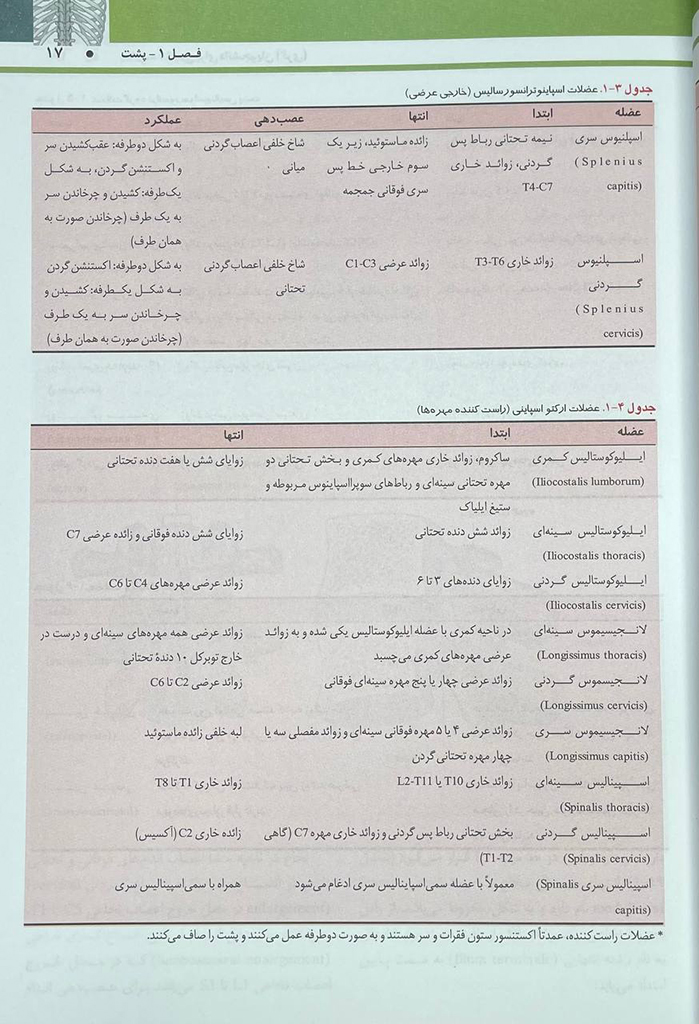 فصل ۱ - پشت • ۱۷
جدول ۳-۱. عضلات اسپاینوترانسورسالیس (خارجی عرضی)
عضله ابتدا انتها عصب‌دهی عملکرد
اسپلنیوس سری نیمه تحتانی رباط پس زائده ماستوئید، زیر یک شاخ خلفی اعصاب گردنی به شکل دوطرفه: عقب‌کشیدن سر
(Splenius گردنی، زوائد خاری سوم خارجی خط پس میانی و اکستنشن گردن، به شکل
capitis) T4-C7 سری فوقانی جمجمه یک‌طرفه: کشیدن و چرخاندن سر
به یک طرف (چرخاندن صورت به
همان طرف)
اسپلنیوس زوائد خاری T3-T6 زوائد عرضی C1-C3 شاخ خلفی اعصاب گردنی به شکل دوطرفه: اکستنشن گردن
گردنی تحتانی به شکل یک‌طرفه: کشیدن و
(Splenius چرخاندن سر به یک طرف
cervicis) (چرخاندن صورت به همان طرف)
جدول ۴-۱. عضلات ارکتو اسپاینی (راست کننده مهره‌ها)
عضله ابتدا انتها
ایلیوکوستالیس کمری ساکروم، زوائد خاری مهره‌های کمری و بخش تحتانی دو زوایای شش یا هفت دنده تحتانی
(Iliocostalis lumborum) مهره تحتانی سینه‌ای و رباط‌های سوپرااسپاینوس مربوطه و
ستیغ ایلیاک
ایلیوکوستالیس سینه‌ای زوائد شش دنده تحتانی زوایای شش دنده فوقانی و زائده عرضی C7
(Iliocostalis thoracis)
ایلیوکوستالیس گردنی زوایای دنده‌های ۳ تا ۶ زوائد عرضی مهره‌های C4 تا C6
(Iliocostalis cervicis)
لانجیسیموس سینه‌ای در ناحیه کمری با عضله ایلیوکوستالیس یکی شده و به زوائد زوائد عرضی همه مهره‌های سینه‌ای و درست در
(Longissimus thoracis) عرضی مهره‌های کمری می‌چسبد خارج توبرکل ۱۰ دندهٔ تحتانی
لانجیسموس گردنی زوائد عرضی چهار یا پنج مهره سینه‌ای فوقانی زوائد عرضی C2 تا C6
(Longissimus cervicis)
لانجیسیموس سری زوائد عرضی ۴ یا ۵ مهره فوقانی سینه‌ای و زوائد مفصلی سه یا لبه خلفی زائده ماستوئید
(Longissimus capitis) چهار مهره تحتانی گردن
اسپینالیس سینه‌ای زوائد خاری T10 یا L2-T11 زوائد خاری T1 تا T8
(Spinalis thoracis)
اسپینالیس گردنی بخش تحتانی رباط پس گردنی و زوائد خاری مهره C7 (گاهی زائده خاری C2 (آکسیس)
(Spinalis cervicis) T1-T2)
اسپینالیس سری (Spinalis معمولاً با عضله سمی‌اسپاینالیس سری ادغام می‌شود همراه با سمی‌اسپینالیس سری
capitis)
* عضلات راست‌کننده، عمدتاً اکستنسور ستون فقرات و سر هستند و به صورت دوطرفه عمل می‌کنند و پشت را صاف می‌کنند.